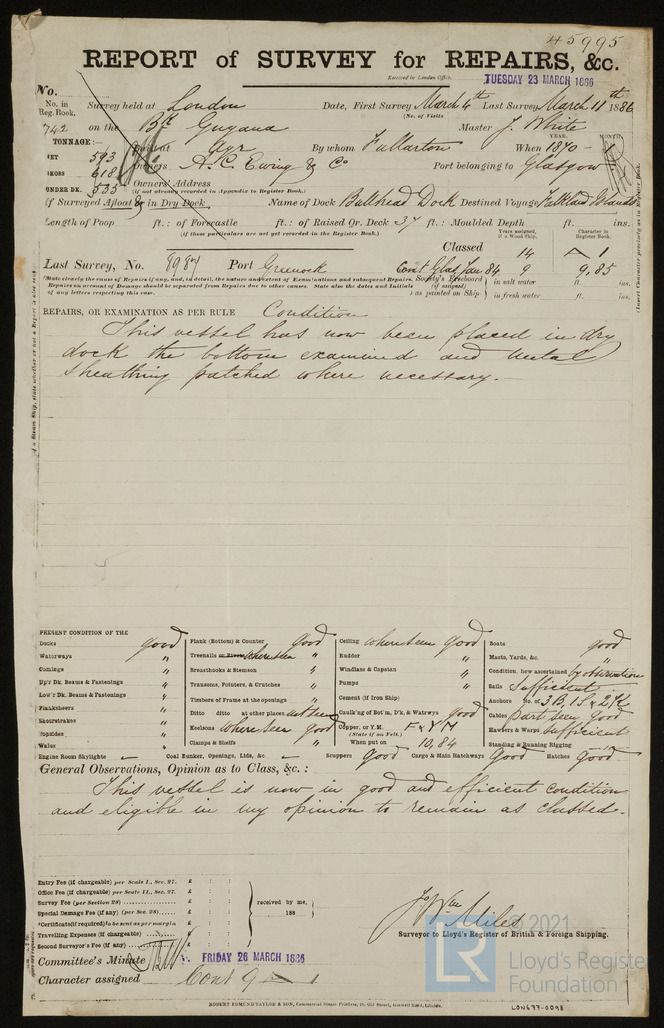 45995
REPORT of SURVEY for REPAIRS, &c.
Received in London Office, TUESDAY 23 MARCH 1886
No.
No. in Reg. Book. Survey held at London Date, First Survey March 4th Last Survey March 11th 1886
(No. of Visits
742 on the Bk Guyana Master J. White
TONNAGE:— Built at Ayr By whom Fullarton When 1870 YEAR. MONTH.
NET 593 Owners A. C. Ewing & Co Port belonging to Glasgow
GROSS 618 Owners' Address
UNDER DK. 535 (if not already recorded in Appendix to Register Book.)
If Surveyed Afloat & in Dry Dock Name of Dock Bulkhead Dock Destined Voyage Falkland Islands
Length of Poop ft.: of Forecastle ft.: of Raised Qr. Deck 37 ft.: Moulded Depth ft. ins.
(if these particulars are not yet recorded in the Register Book.) Years assigned, if a Wood Ship. Character in Register Book.
Classed 14 A 1
Last Survey, No. 8987 Port Greenock Cont. Glas Jan 84 9 9,85
(State clearly the cause of Repairs if any, and, in detail, the nature and extent of Examinations and subsequent Repairs.
Repairs on account of Damage should be separated from Repairs due to other causes. State also the dates and Initials
of any letters respecting this case.
Society's Freeboard (if assigned) as painted on Ship } in salt water ft. ins.
in fresh water ft. ins.
REPAIRS, OR EXAMINATION AS PER RULE Condition
This vessel has now been placed in dry
dock the bottom examined and metal
sheathing patched where necessary.—
PRESENT CONDITION OF THE
Decks good
Waterways "
Comings "
Up'r Dk. Beams & Fastenings "
Low'r Dk. Beams & Fastenings "
Planksheers "
Sheerstrakes "
Topsides "
Wales "
Engine Room Skylights
Plank (Bottom) & Counter good
Treenails or Rivets where seen "
Breasthooks & Stemson "
Transoms, Pointers, & Crutches "
Timbers of Frame at the openings "
Ditto ditto at other places not seen
Keelsons where seen good
Clamps & Shelfs "
Coal Bunker, Openings, Lids, &c.
Ceiling where seen good
Rudder "
Windlass & Capstan "
Pumps "
Cement (if Iron Ship)
Caulk'ng of Bot'm, D'k, & Waterways good
Copper, or Y.M. F & YM
(State if on Felt.)
When put on 10,84
Scuppers Good
Cargo & Main Hatchways Good
Boats good
Masts, Yards, &c. "
Condition, how ascertained by observation
Sails Sufficient
Anchors No. of 3B, 1S & 2K
Cables part seen good
Hawsers & Warps Sufficient
Standing & Running Rigging
Hatches Good
General Observations, Opinion as to Class, &c.:
This vessel is now in good and efficient condition
and eligible in my opinion to remain as classed.
Entry Fee (if chargeable) per Scale I., Sec. 27. £ : :
Office Fee (if chargeable) per Scale II., Sec. 27. £ : :
Survey Fee (per Section 28) £ : :
Special Damage Fee (if any) (per Sec. 28) £ : :
*Certificate (if required) to be sent as per margin
Travelling Expenses (if chargeable) £ : :
Second Surveyor's Fee (if any) £ : :
received by me,
188
Jo. Wm Miles
Surveyor to Lloyd's Register of British & Foreign Shipping.
Committee's Minute FRIDAY 26 MARCH 1886
Character assigned Cont 9 A 1
ROBERT EDMUND TAYLOR & SON, Commercial Steam Printers, 19, Old Street, Goswell Road, London.
LON677-0098
2021
LR
Lloyd's Register
Foundation